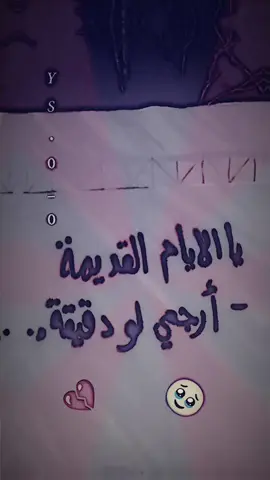 Y S . 0 = 0
يا الايام القديمة
- أرجعي لو دقيقة. . .